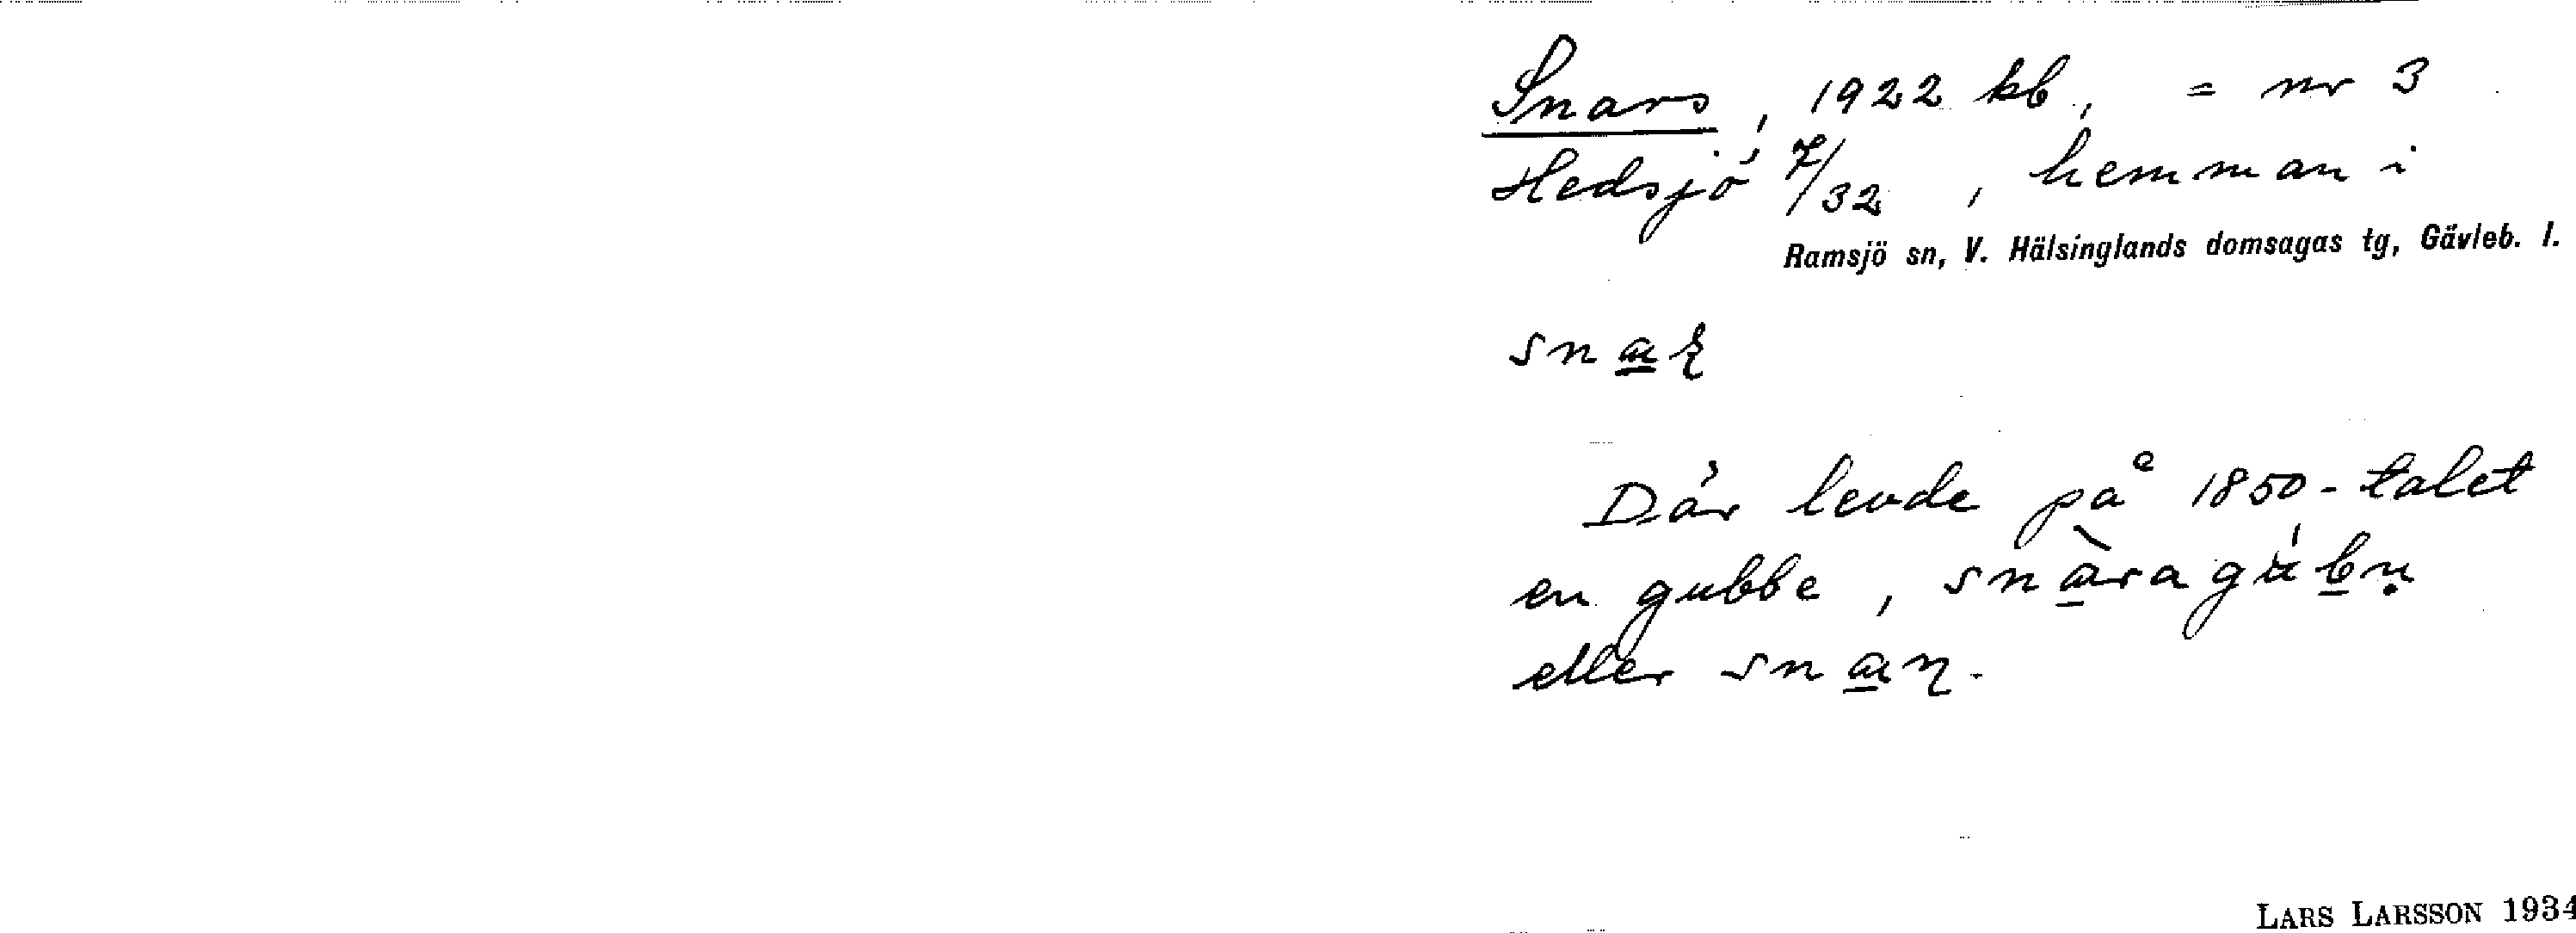 Snars, 1922 kb, = nr 3
Hedsjö 7/32, hemman i
Ramsjö sn, V. Hälsinglands domsagas tg, Gävleb. l.
Där levde på 1850-talet
en gubbe, snàragúbn̥
eller
LARS LARSSON 1934